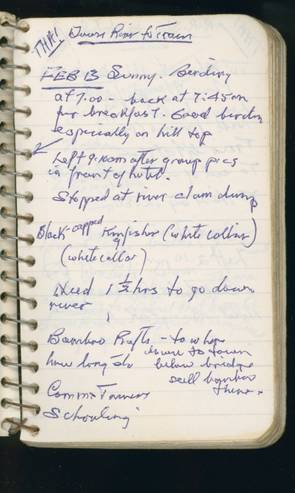 THA! Down River to train
FEB 13 Sunny. Birding
at 7:00 - back at 7:45am
for breakfast. Good birding
especially on hill top
Left 9:10am after group pics
in front of hotel.
Stopped at river clam dump
Black-capped Kingfisher (white collar)
(white collar)
Need 1 1/2 hrs to go down
river
Bamboo Rafts - to whom
how long do
down to town
below bridge
sell bamboo
there.
Comm. Farmers
Schooling